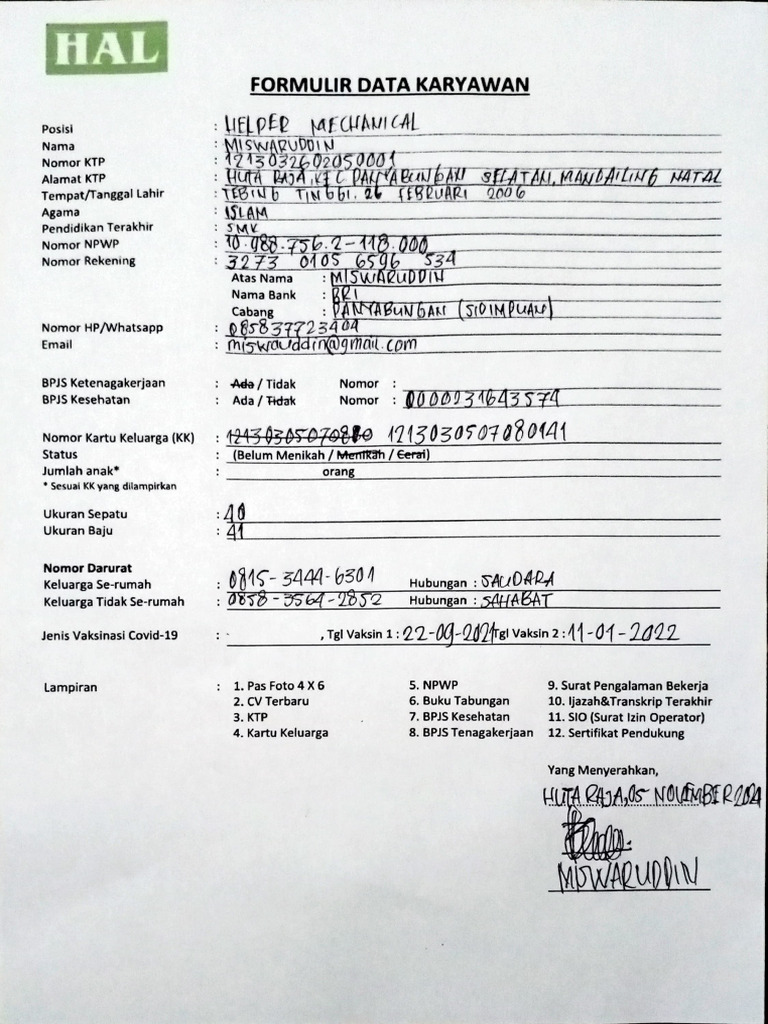 HAL
FORMULIR DATA KARYAWAN
Posisi : HELPER MECHANICAL
Nama : MISWARUDDIN
Nomor KTP : 1213032602050001
Alamat KTP : HUTA RAJA, KEC PANYABUNGAN SELATAN, MANDAILING NATAL
Tempat/Tanggal Lahir : TEBING TINGGI. 26 FEBRUARI 2006
Agama : ISLAM
Pendidikan Terakhir : SMK
Nomor NPWP : 10.988.756.2-118.000
Nomor Rekening : 3273 0105 6596 534
Atas Nama : MISWARUDDIN
Nama Bank : BRI
Cabang : PANYABUNGAN (SIDIMPUAN)
Nomor HP/Whatsapp : 085837723404
Email : miswauddin@gmail.com
BPJS Ketenagakerjaan : Ada / Tidak Nomor :
BPJS Kesehatan : Ada / Tidak Nomor : 0000231643574
Nomor Kartu Keluarga (KK) : 1213030507080141
Status : (Belum Menikah / Menikah / Cerai)
Jumlah anak* : orang
* Sesuai KK yang dilampirkan
Ukuran Sepatu : 40
Ukuran Baju : 41
Nomor Darurat
Keluarga Se-rumah : 0815-3444-6301 Hubungan : SAUDARA
Keluarga Tidak Se-rumah : 0858-3564-2852 Hubungan : SAHABAT
Jenis Vaksinasi Covid-19 : - , Tgl Vaksin 1 : 22-09-2021 Tgl Vaksin 2 : 11-01-2022
Lampiran : 1. Pas Foto 4 X 6 5. NPWP 9. Surat Pengalaman Bekerja
2. CV Terbaru 6. Buku Tabungan 10. Ijazah&Transkrip Terakhir
3. KTP 7. BPJS Kesehatan 11. SIO (Surat Izin Operator)
4. Kartu Keluarga 8. BPJS Tenagakerjaan 12. Sertifikat Pendukung
Yang Menyerahkan,
HUTA RAJA, 05 NOVEMBER 2024
MISWARUDDIN